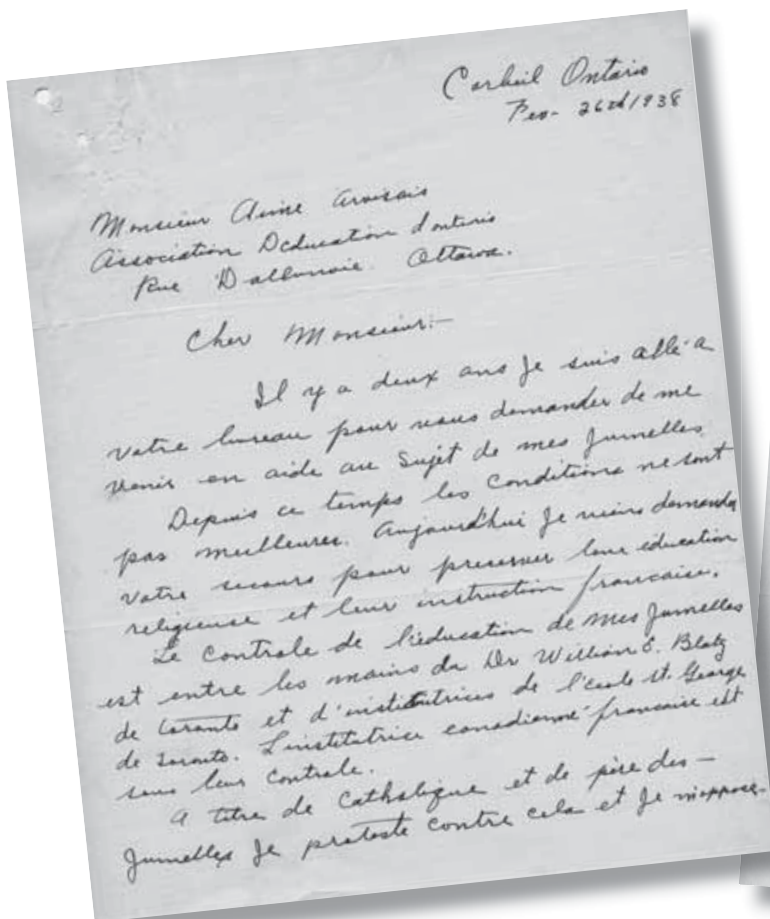 Corbeil Ontario
Fev- 26th/1938
Monsieur Aime Arvisais
Association Deducation d'ontario
Rue Dalhousie Ottawa.
Cher Monsieur:-
Il y a deux ans Je suis allé a
votre bureau pour vous demander de me
venir en aide au Sujet de mes Jumelles.
Depuis ce temps les Conditions ne sont
pas meilleures. Aujourdhui Je viens demander
votre secours pour preserver leur education
religieuse et leur instruction francaise.
Le Controle de l'education de mes Jumelles
est entre les mains du Dr William E. Blatz
de Toronto et d'institutrices de l'ecole St. George
de Toronto. L'institutrice canadienne-francaise est
sous leur Controle.
A titre de Catholique et de père des-
Jumelles Je proteste contre cela et Je m'oppose-